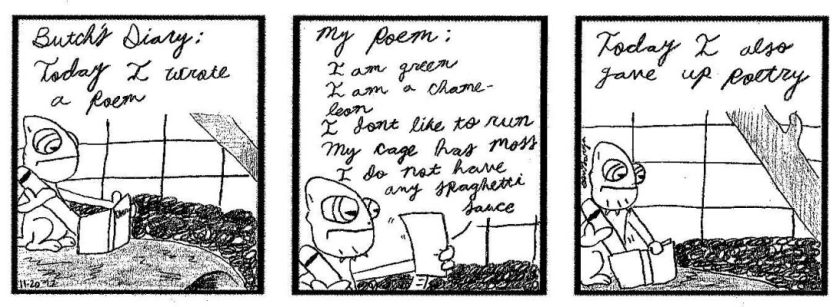 Butch's Diary:
Today I wrote
a Poem
11-20
My Poem:
I am green
I am a chame-
leon
I dont like to run
My cage has moss
I do not have
any spaghetti
sauce
Today I also
gave up Poetry